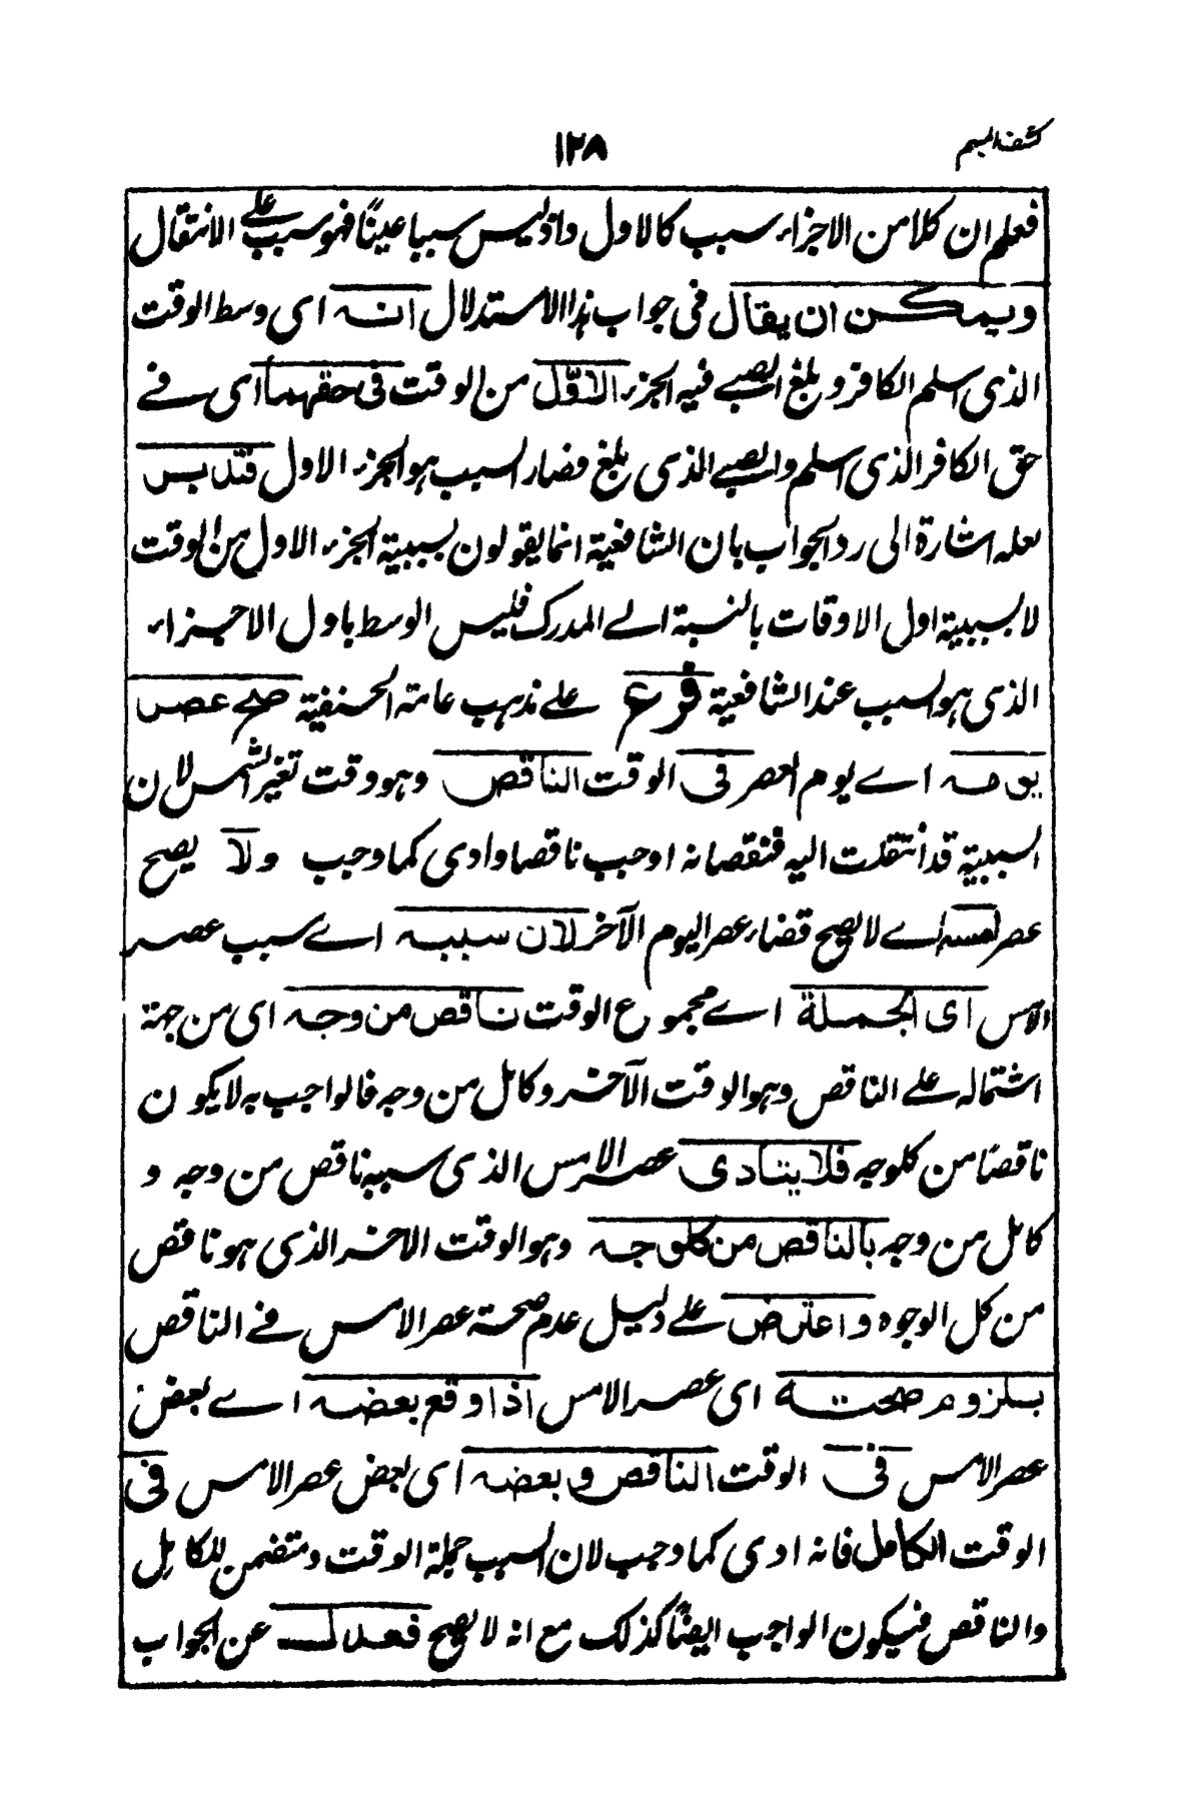 كشف المبهم
١٢٨
فعلم ان كلا من الاجزاء سبب كالاول واذ ليس سببا عينًا فهو سبب على الانتقال
ويمكن ان يقال فى جواب هذا الاستدلال انه اى وسط الوقت
الذى اسلم الكافر وبلغ الصبے فيه الجزء الاوّل من الوقت فى حقهما اى فے
حق الكافر الذى اسلم والصبے الذى بلغ فصار السبب هو الجزء الاول فتدبر
لعله اشارة الى رد الجواب بان الشافعية انما يقولون بسببية الجزء الاول من الوقت
لا بسببية اول الاوقات بالنسبة الے المدرك فليس الوسط باول الاجزاء
الذى هو السبب عند الشافعية فرع علے مذهب عامة الحنفية صح عصر
يومه اے يوم العصر فى الوقت الناقص وهو وقت تغير الشمس لان
السببية قد انتقلت اليه فنقصانه اوجب ناقصا وادى كما وجب ولا يصح
عصر امسه اے لا يصح قضاء عصر اليوم الآخر لان سببه اے سبب عصر
الامس اى الجملة اے مجموع الوقت ناقص من وجه اى من جهة
اشتماله علے الناقص وهو الوقت الآخر وكامل من وجه فالواجب به لا يكون
ناقصًا من كلوجه فلا يتادى عصر الامس الذى سببه ناقص من وجه و
كامل من وجه بالناقص من كلوجه وهو الوقت الاخر الذى هو ناقص
من كل الوجوه واعترض علے دليل عدم صحة عصر الامس فے الناقص
بلزوم صحته اى عصر الامس اذا وقع بعضه اے بعض
عصر الامس فى الوقت الناقص وبعضه اى بعض عصر الامس فى
الوقت الكامل فانه ادى كما وجب لان السبب جملة الوقت ومتضمن للكامل
والناقص فيكون الواجب ايضًا كذلك مع انه لا يصح فعدل عن الجواب